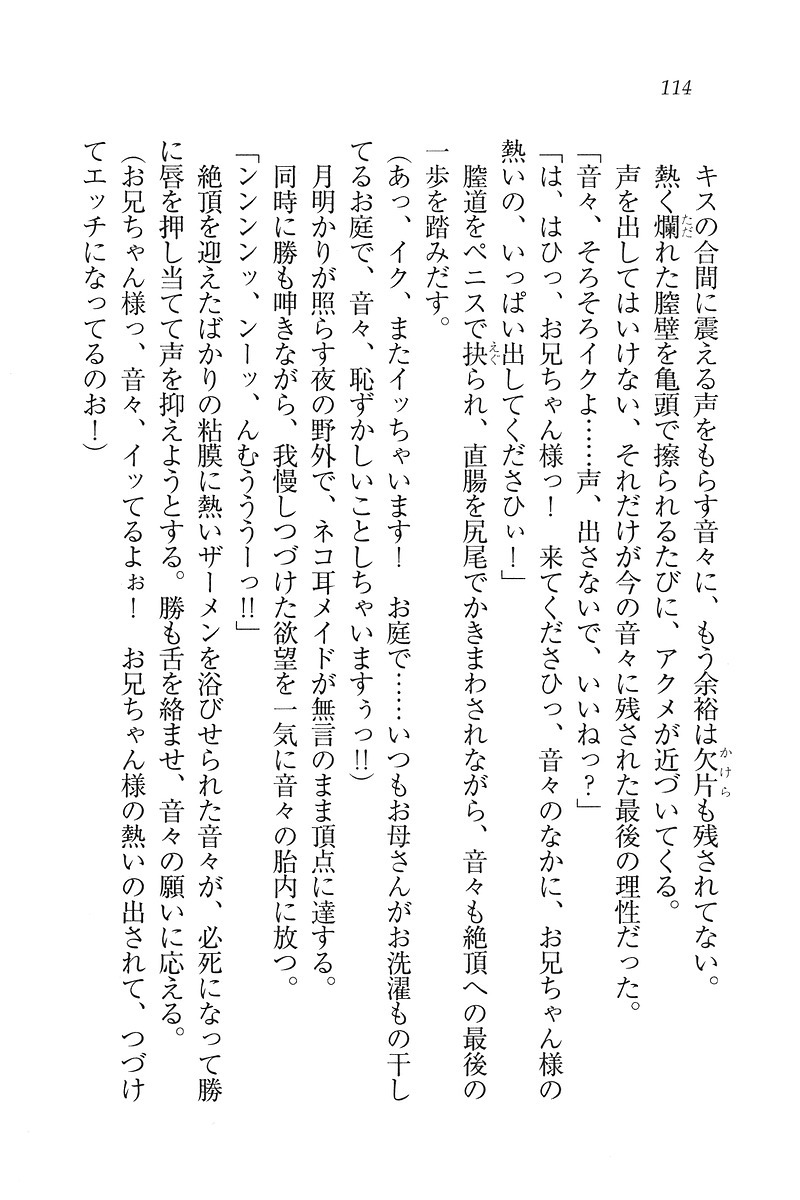 114
キスの合間に震える声をもらす音々に、もう余裕は欠片も残されてない。
熱く爛れた膣壁を亀頭で擦られるたびに、アクメが近づいてくる。
声を出してはいけない、それだけが今の音々に残された最後の理性だった。
「音々、そろそろイクよ……声、出さないで、いいねっ？」
「は、はひっ、お兄ちゃん様っ！　来てくださひっ、音々のなかに、お兄ちゃん様の
熱いの、いっぱい出してくださひぃ！」
膣道をペニスで抉られ、直腸を尻尾でかきまわされながら、音々も絶頂への最後の
一歩を踏みだす。
（あっ、イク、またイッちゃいます！　お庭で……いつもお母さんがお洗濯もの干し
てるお庭で、音々、恥ずかしいことしちゃいますぅっ!!）
月明かりが照らす夜の野外で、ネコ耳メイドが無言のまま頂点に達する。
同時に勝も呻きながら、我慢しつづけた欲望を一気に音々の胎内に放つ。
「ンンンンッ、ンーッ、んむうううーっ!!」
絶頂を迎えたばかりの粘膜に熱いザーメンを浴びせられた音々が、必死になって勝
に唇を押し当てて声を抑えようとする。勝も舌を絡ませ、音々の願いに応える。
（お兄ちゃん様っ、音々、イッてるよぉ！　お兄ちゃん様の熱いの出されて、つづけ
てエッチになってるのお！）